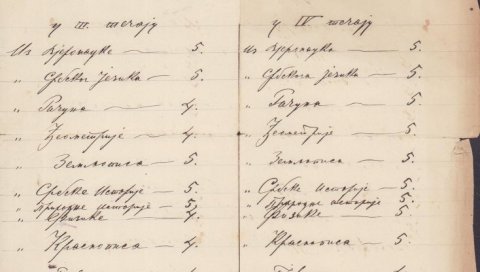 у III. течају
Из Вјеронауке — 5.
„ Србског језика — 5.
„ Рачуна — 4.
„ Геометрије — 4.
„ Землописа — 5.
„ Србске историје — 5.
„ Природне историје — 5.
„ Физике — 4.
„ Краснописа — 4.
у IV течају
Из Вјеронауке — 5.
„ Србскога језика — 5.
„ Рачуна — 5
„ Геометрије — 5.
„ Землописа — 5.
„ Србске историје — 5.
„ Природне историје 5.
„ Физике — 5
„ Краснописа — 5.